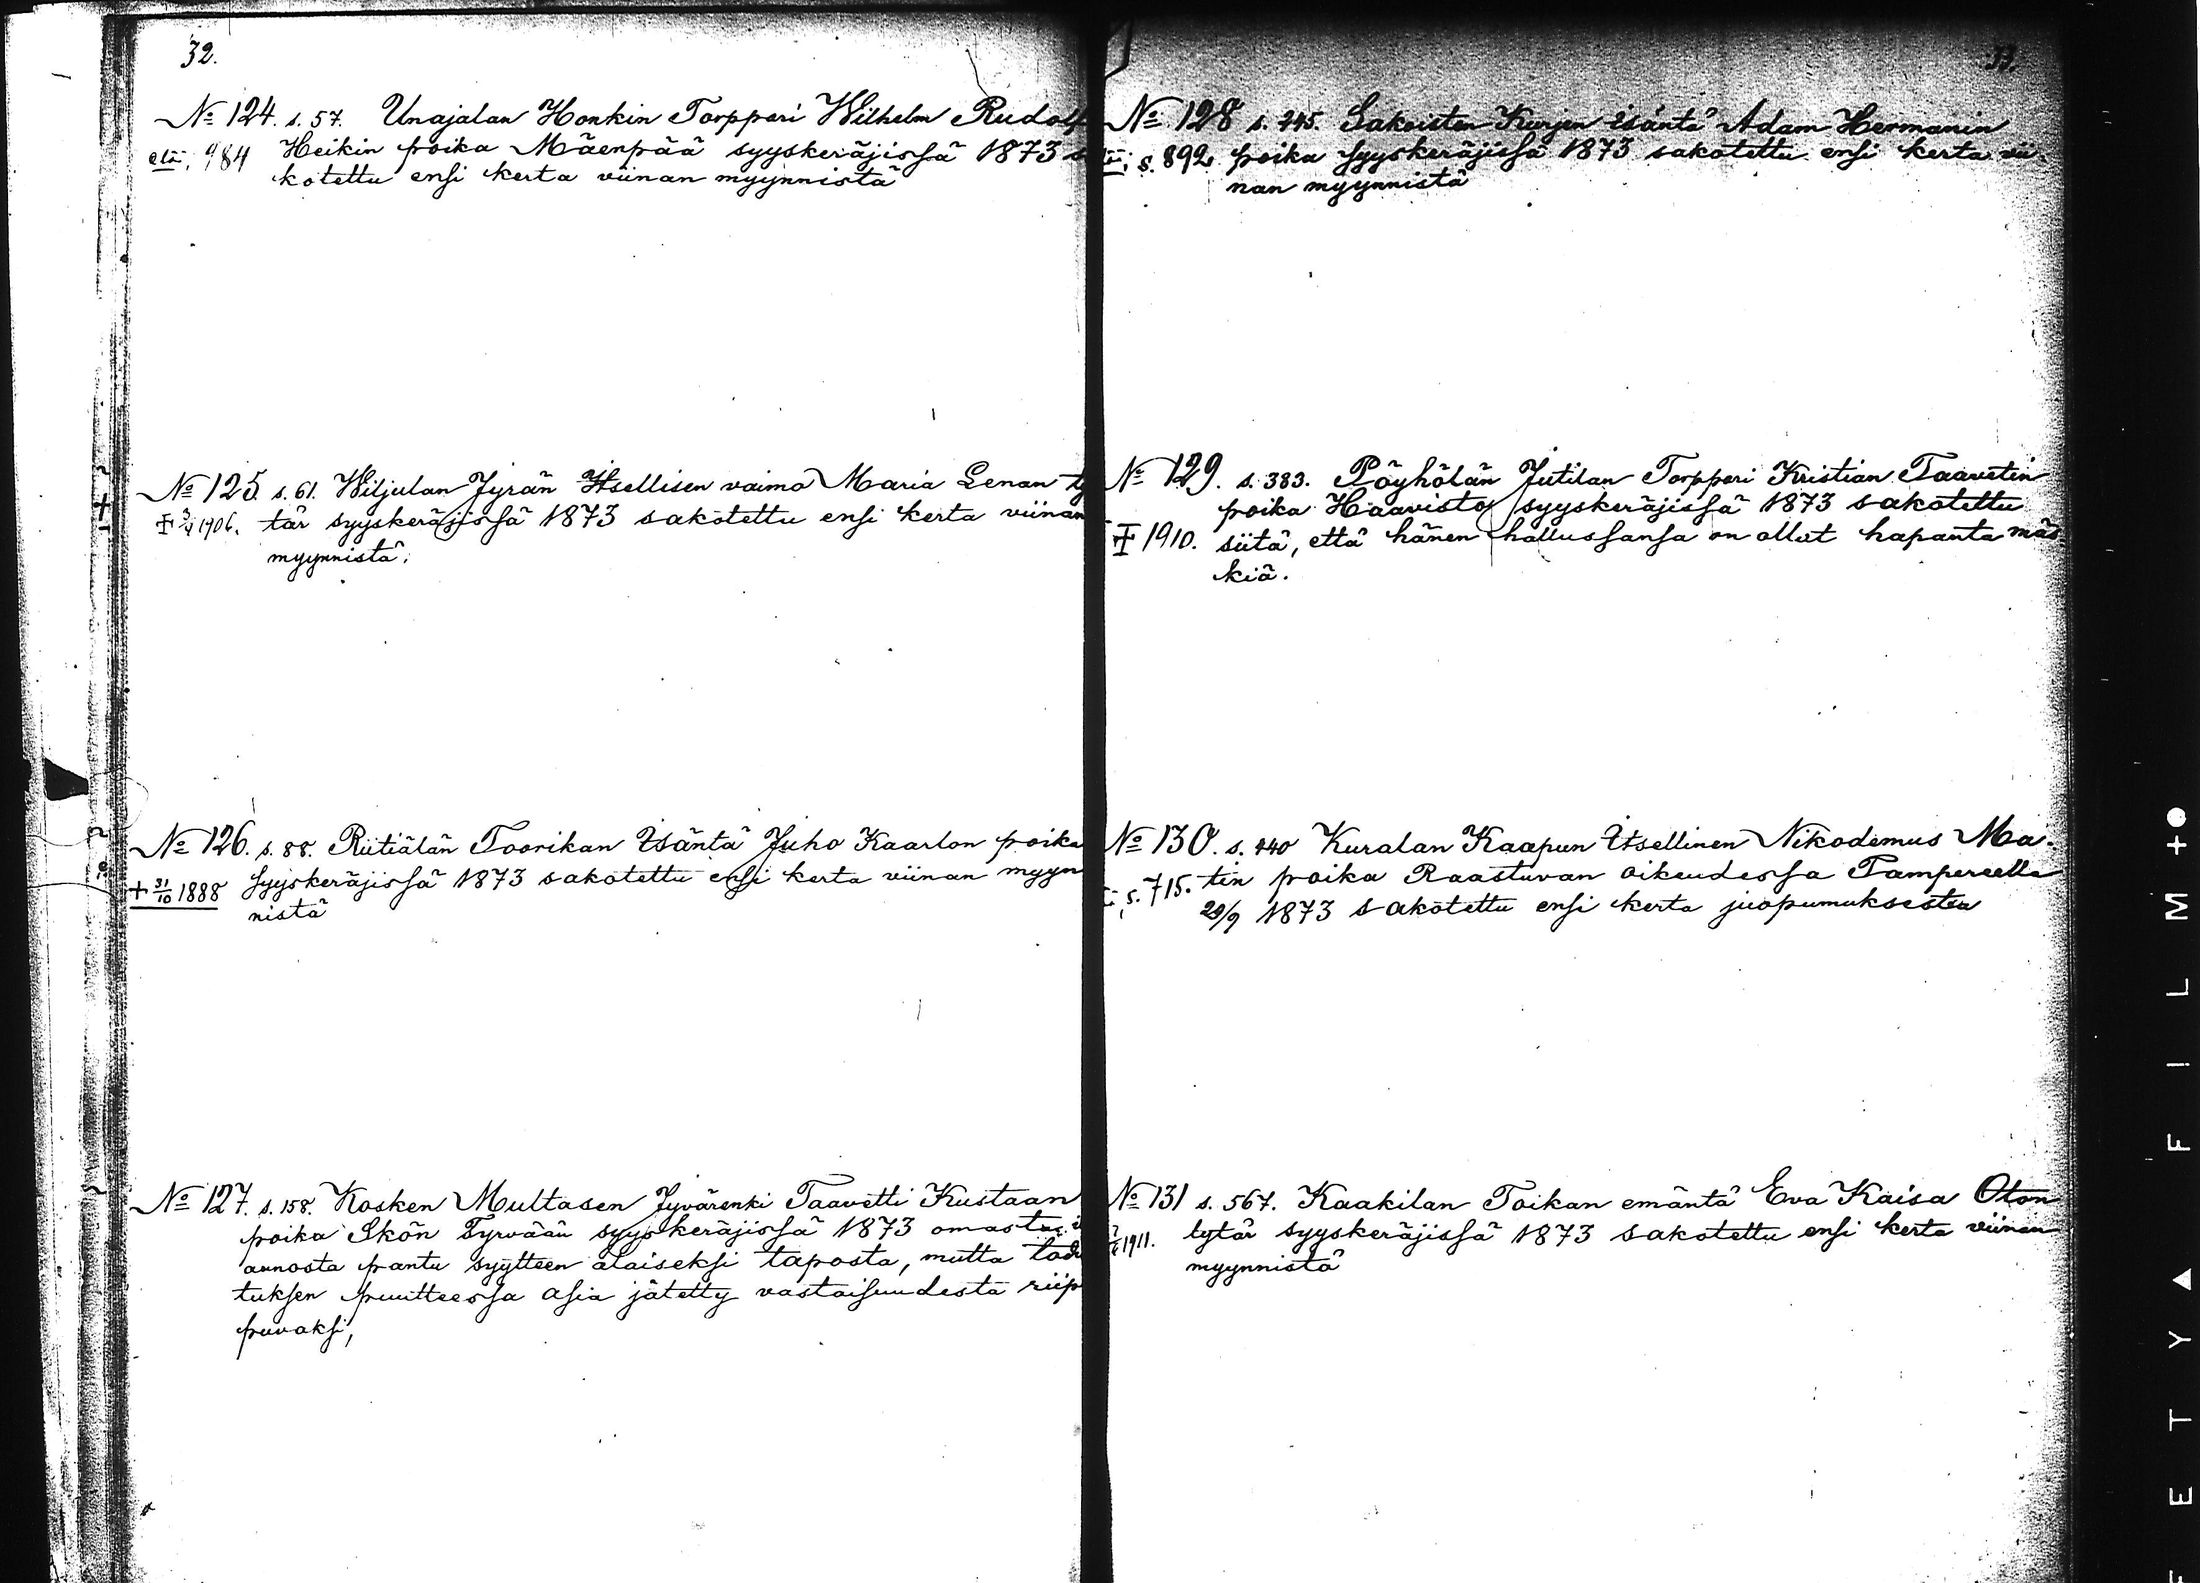 32.
№ 124. s. 57. Unajalan Honkin Torppari Wilhelm Rudolf
elä, 984 Heikin poika Mäenpää syyskeräjissä 1873 s
kotettu ensi kerta viinan myynnistä
№ 125. s. 61. Wiljulan Jyrän Itsellisen vaimo Maria Lenan ty
1906. tär syyskeräjissä 1873 sakotettu ensi kerta viinan
myynnistä.
№ 126. s. 88. Riitiälän Toorikan Isäntä Juho Kaarlon poika
+ 31/10 1888 syyskeräjissä 1873 sakotettu ensi kerta viinan myyn
nistä
№ 127. s. 158. Kosken Multasen Jyvärenki Taavetti Kustaan
poika Skön Tyrvään syyskeräjissä 1873 omasta
annosta pantu syytteen alaiseksi taposta, mutta tod
tuksen puutteessa asia jätetty vastaisuudesta riip
puvaksi,
33.
№ 128 s. 245. Sakoisten Kurjen isäntä Adam Hermanin
s. 892 poika syyskeräjissä 1873 sakotettu ensi kerta vii
nan myynnistä
№ 129. s. 383. Pöyhölän Jutilan Torppari Kristian Taavetin
poika Haavisto syyskeräjissä 1873 sakotettu
1910. siitä, että hänen hallussansa on ollut hapanta mäs
kiä.
№ 130. s. 440 Kuralan Kaapun Itsellinen Nikodemus Ma-
s. 715. tin poika Raastuvan oikeudessa Tampereella
29/9 1873 sakotettu ensi kerta juopumuksesta
№ 131 s. 567. Kaakilan Toikan emäntä Eva Kaisa Oton
1911. tytär syyskeräjissä 1873 sakotettu ensi kerta viinan
myynnistä
FILM